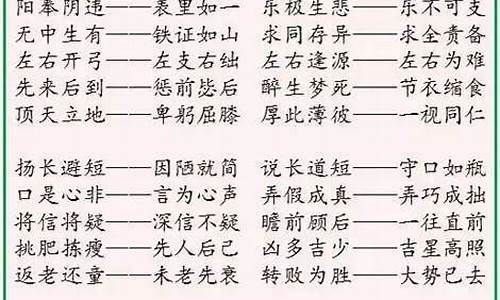 阳奉阴违——表里如一 乐极生悲——乐不可支
无中生有——铁证如山 求同存异——求全责备
左右开弓——左支右绌 左右逢源——左右为难
先来后到——惩前毖后 醉生梦死——节衣缩食
顶天立地——卑躬屈膝 厚此薄彼——一视同仁
扬长避短——因陋就简 说长道短——守口如瓶
口是心非——言为心声 弄假成真——弄巧成拙
将信将疑——深信不疑 瞻前顾后——一往直前
挑肥拣瘦——先人后己 凶多吉少——吉星高照
返老还童——未老先衰 转败为胜——大势已去